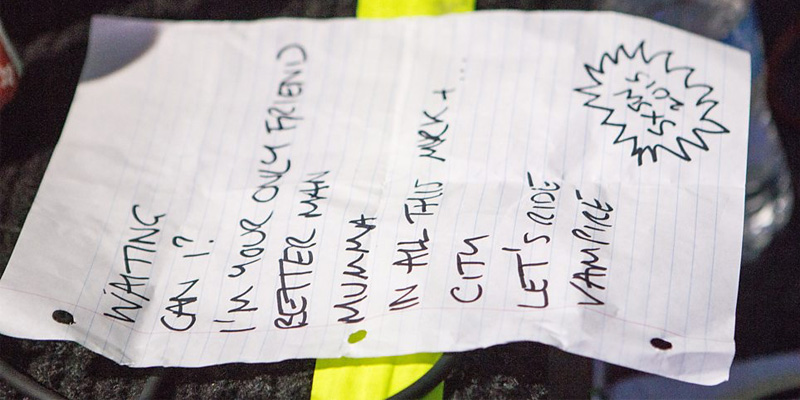 WAITING
CAN I?
I'M YOUR ONLY FRIEND
BETTER MAN
MUMMA
IN ALL THIS MRK + ...
CITY
LET'S RIDE
VAMPIRE